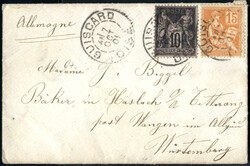 Allemagne
GUISCARD
OISE
10
15
Madame J. Biggel
Bäker in Haslach OA Tettnang
post Wangen im Allgäu
Würtemberg